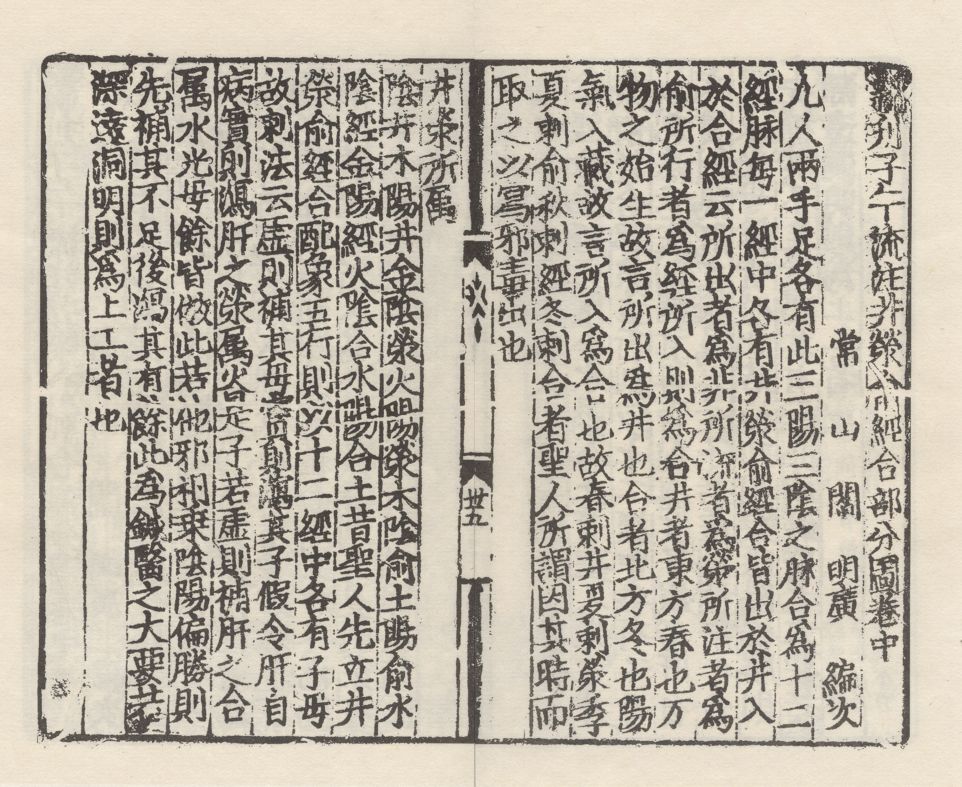 新刋子午流注井滎俞經合部分圖卷中
常山閻明廣編次
凡人兩手足各有此三陽三陰之脉合爲十二
經脉每一經中各有井滎俞經合皆出於井入
於合經云所出者爲井所流者爲滎所注者爲
俞所行者爲經所入則爲合井者東方春也万
物之始生故言所出爲井也合者北方冬也陽
氣入藏故言所入爲合也故春刺井夏刺滎季
夏刺俞秋刺經冬刺合者聖人所謂因其時而
取之以寫邪毒出也
卅五
井滎所屬
陰井木陽井金陰滎火陽滎水陰俞土陽俞木
陰經金陽經火陰合水陽合土昔聖人先立井
滎俞經合配象五行則以十二經中各有子母
故刺法云虛則補其母實則瀉其子假令肝自
病實則瀉肝之滎属火是子若虛則補肝之合
属水是母餘皆倣此若他邪相乗陰陽偏勝則
先補其不足後瀉其有餘此爲鍼醫之大要若
深達洞明則爲上工者也